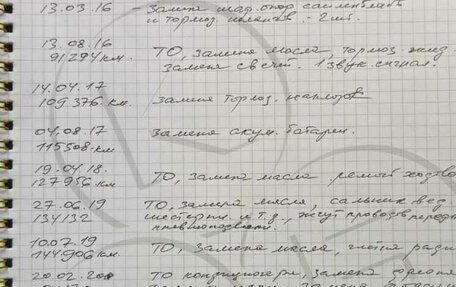 13.03.16 - Замена шар. опор, сайлентблок
и тормоз. шлангов. - 2 шт.
13.08.16 ТО, замена масла, тормоз. жид.
91294 км. Замена свечей. 1 звук. сигнал.
14.04.17
109 376. км. Замена тормоз. накладок
04.08.17 Замена акум. батареи.
115508. км
19.04.18. ТО, замена масла, ремонт ходово
127956 км
27.06.19 ТО, замена масла, сальник вед.
134132 шестерни и т.д., жгут проводов передн
пневмоподвески.
10.07.19 ТО, замена масла,
144906 км.
20.02. ТО кондиционера, замена
замена